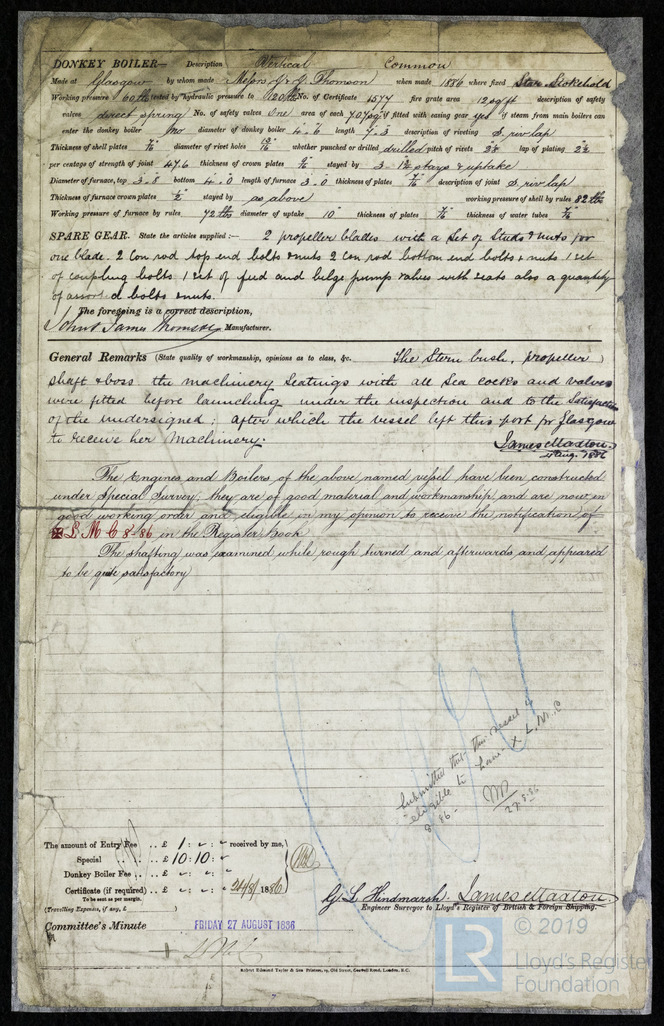 DONKEY BOILER— Description Vertical Common
Made at Glasgow by whom made Messrs J & J Thomson when made 1886 where fixed Star. Stokehold
Working pressure 60 lbs tested by hydraulic pressure to 120 lbs No. of Certificate 1577 fire grate area 12 sq ft description of safety
valves direct spring No. of safety valves One area of each 7.07 sq in if fitted with easing gear yes if steam from main boilers can
enter the donkey boiler no diameter of donkey boiler 4.6 length 7.3 description of riveting D. riv lap
Thickness of shell plates diameter of rivet holes whether punched or drilled drilled pitch of rivets lap of plating
per centage of strength of joint 47.6 thickness of crown plates stayed by 3 - 1½ stays & uptake
Diameter of furnace, top 3.8 bottom 4.0 length of furnace 3.0 thickness of plates description of joint S. riv lap
Thickness of furnace crown plates ½ stayed by as above working pressure of shell by rules 82 lbs
Working pressure of furnace by rules 72 lbs diameter of uptake 10" thickness of plates thickness of water tubes
SPARE GEAR. State the articles supplied:— 2 propeller blades with a Set of Studs & nuts for
one blade. 2 Con rod top end bolts & nuts 2 Con rod bottom end bolts & nuts 1 set
of coupling bolts 1 set of feed and bilge pump valves with seats also a quantity
of assord bolts & nuts.
The foregoing is a correct description,
John & James Thomson Manufacturer.
General Remarks (State quality of workmanship, opinions as to class, &c. The Stern bush, propeller
shaft & boss the machinery Seatings with all Sea cocks and valves
were fitted before launching under the inspection and to the Satisfaction
of the undersigned; after which the vessel left this port for Glasgow
to receive her Machinery.
James Maxton
Aug. 1886
The Engines and Boilers of the above named vessel have been constructed
under Special Survey; they are of good material and workmanship and are now in
good working order and eligible in my opinion to receive the notification of
✠ L M C 8-86 in the Register Book
The shafting was examined while rough turned and afterwards and appeared
to be quite satisfactory
Submitted that this vessel is
eligible to have + L.M.C
8.86.
27.8.86
The amount of Entry Fee .. £ 1 : - : - received by me,
Special .. £ 10 : 10 : -
Donkey Boiler Fee .. £ - : - : -
Certificate (if required) .. £ - : - : - 24/8/ 1886
To be sent as per margin.
(Travelling Expenses, if any, £ )
G. L. Hindmarsh James Maxton
Engineer Surveyor to Lloyd's Register of British & Foreign Shipping.
Committee's Minute FRIDAY 27 AUGUST 1886
Robert Edmund Taylor & Son Printers, 19, Old Street, Goswell Road, London, E.C.
LR
© 2019
Lloyd's Register
Foundation